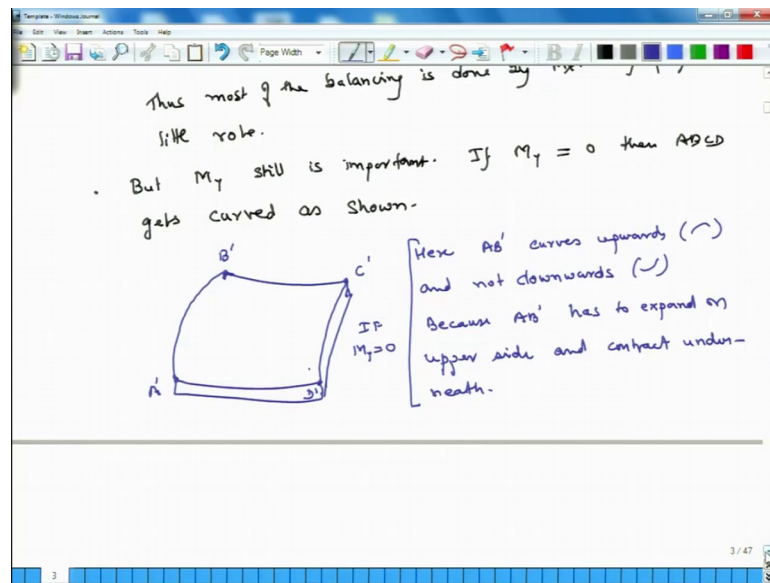 Template - Windows Journal
File Edit View Insert Actions Tools Help
Page Width
Thus most of the balancing is done by
little role.
. But My still is important. If My = 0 then ABCD
gets curved as shown.
B'
C'
A'
D'
IF
My=0
Here AB' curves upwards (⌒)
and not downwards (⌣)
Because AB' has to expand on
upper side and contract under-
neath.
3 / 47
3